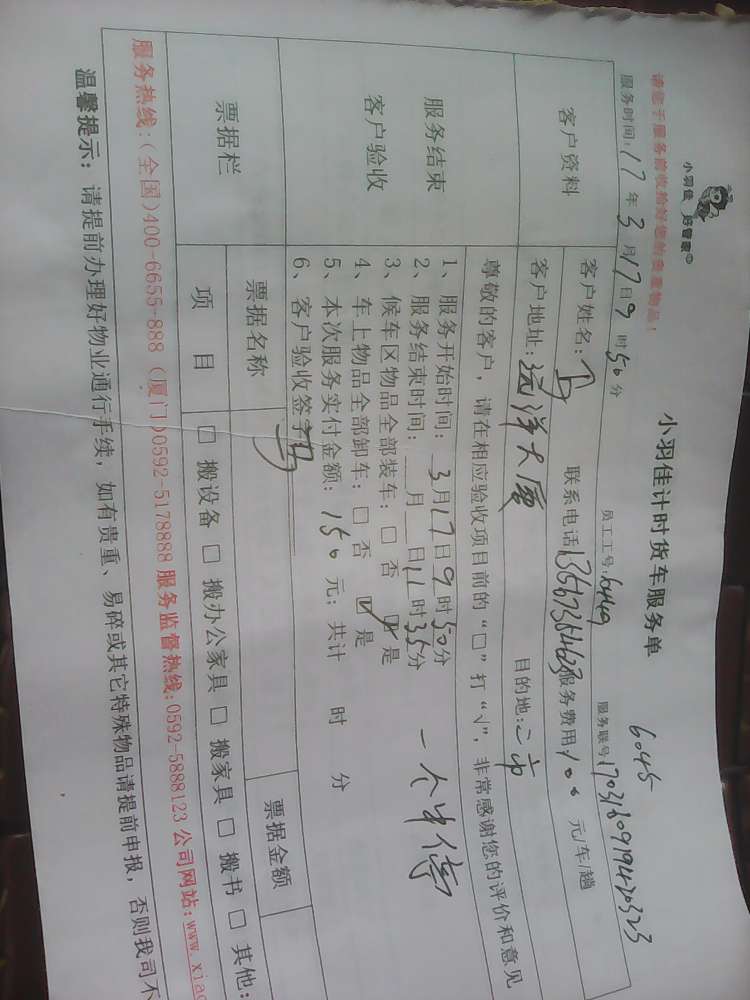 小羽佳 好管家®
小羽佳计时货车服务单
6045
请您于服务前收拾好您的贵重物品！
服务时间：17年3月17日9时50分 员工工号：6449 服务联号
客户资料
客户姓名： 联系电话 服务费用100元/车/趟
客户地址：远洋大厦 目的地：二市
服务结束
客户验收
尊敬的客户，请在相应验收项目前的“□”打“√”，非常感谢您的评价和意见
1、服务开始时间：3月17日9时50分
2、服务结束时间：__月__日11时35分
一个半停
3、候车区物品全部装车：□ 否 ☑ 是
4、车上物品全部卸车：□ 否 ☑ 是
5、本次服务实付金额：150元；共计 时 分
6、客户验收签字
票据栏
票据名称 票据金额
项目 □ 搬设备 □ 搬办公家具 □ 搬家具 □ 搬书 □ 其他：
服务热线：（全国）400-6655-888（厦门）0592-5178888 服务监督热线：0592-5888123 公司网站：www.xiao
温馨提示：请提前办理好物业通行手续，如有贵重、易碎或其它特殊物品请提前申报，否则我司不